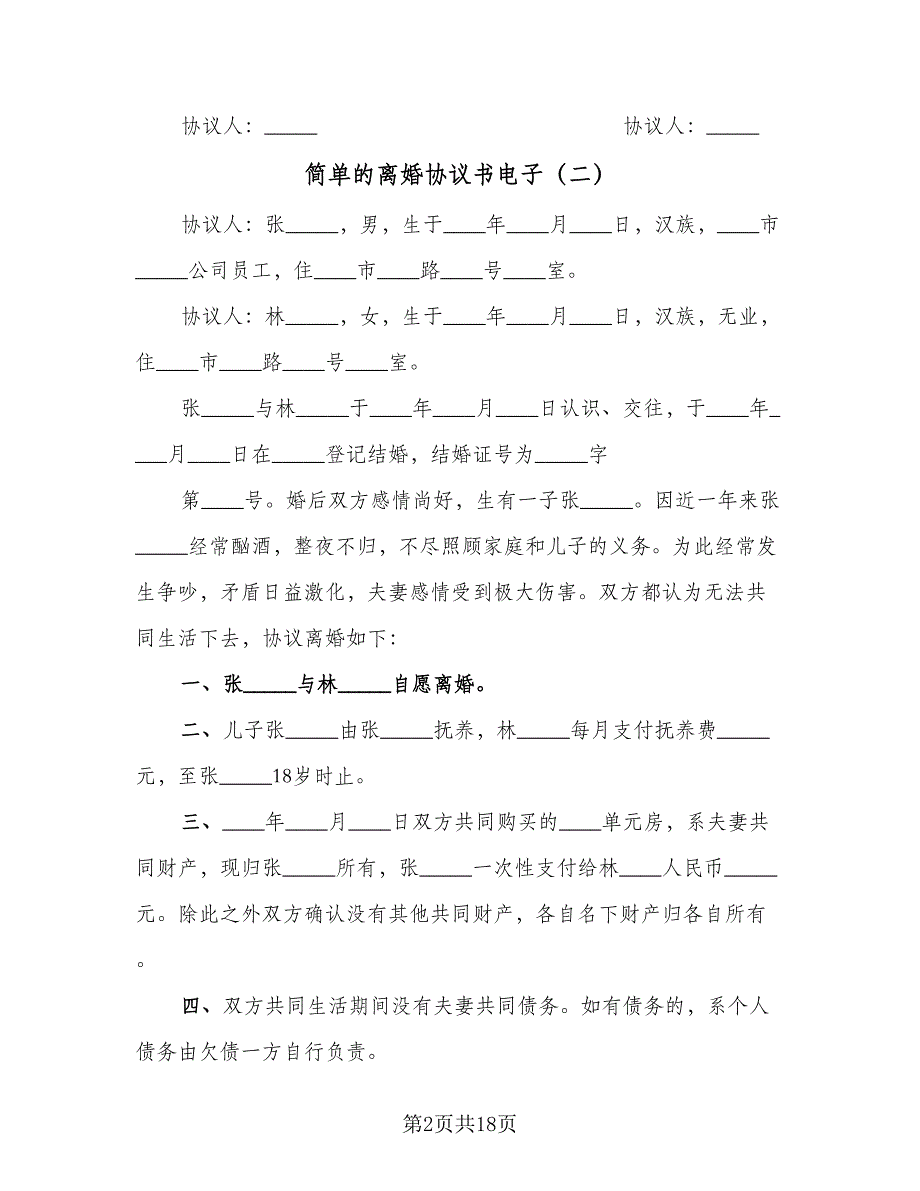 协议人：_____ 协议人：_____
简单的离婚协议书电子（二）
协议人：张_____，男，生于____年____月____日，汉族，____市
_____公司员工，住____市____路____号____室。
协议人：林_____，女，生于____年____月____日，汉族，无业，
住____市____路____号____室。
张_____与林_____于____年____月____日认识、交往，于____年_
___月____日在_____登记结婚，结婚证号为_____字
第____号。婚后双方感情尚好，生有一子张_____。因近一年来张
_____经常酗酒，整夜不归，不尽照顾家庭和儿子的义务。为此经常发
生争吵，矛盾日益激化，夫妻感情受到极大伤害。双方都认为无法共
同生活下去，协议离婚如下：
一、张_____与林_____自愿离婚。
二、儿子张_____由张_____抚养，林_____每月支付抚养费_____
元，至张_____18岁时止。
三、____年____月____日双方共同购买的____单元房，系夫妻共
同财产，现归张_____所有，张_____一次性支付给林____人民币_____
元。除此之外双方确认没有其他共同财产，各自名下财产归各自所有
。
四、双方共同生活期间没有夫妻共同债务。如有债务的，系个人
债务由欠债一方自行负责。
第2页共18页